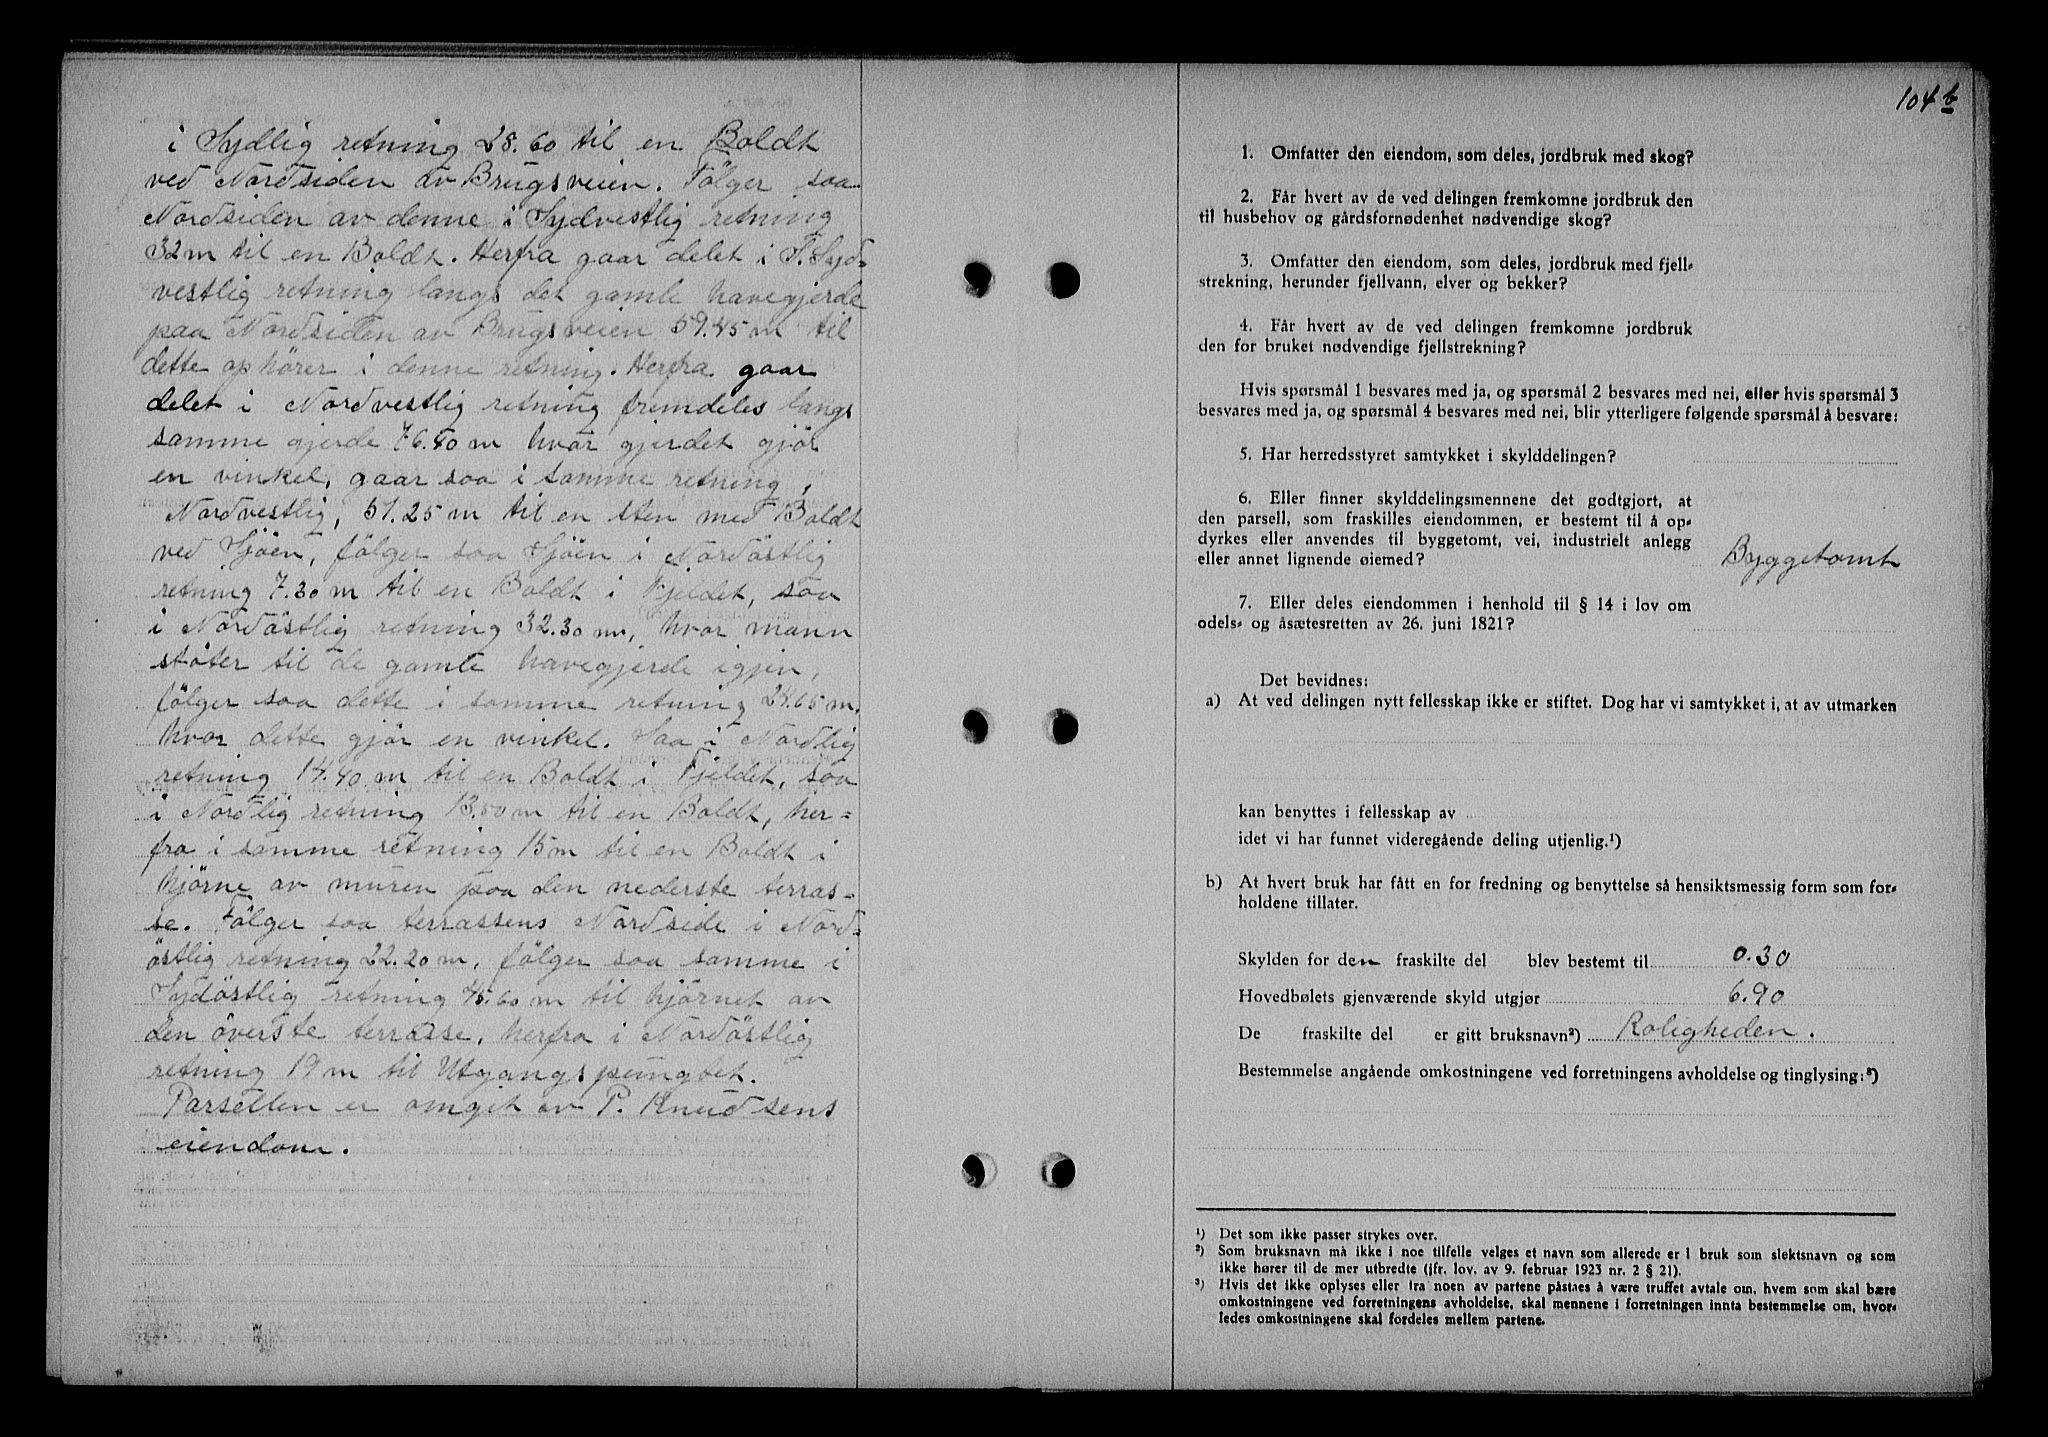 i Sydlig retning 28.60 til en Boldt
ved Nordsiden av Brugsveien. Følger saa
Nordsiden av denne i Sydvestlig retning
32 m til en Boldt. Herfra gaar delet i S. Syd-
vestlig retning langs det gamle havegjerde
paa Nordsiden av Brugsveien 59.45 m til
dette ophører i denne retning. Herfra gaar
delet i Nordvestlig retning fremdeles langs
samme gjerde 76.40 m hvor gjerdet gjör
en vinkel, gaar saa i samme retning,
Nordvestlig, 51.25 m til en sten med Boldt
ved Sjöen, fölger saa Sjöen i Nordöstlig
retning 7.30 m til en Boldt i Fjeldet, saa
i Nordöstlig retning 32.30 m, hvor mann
stöter til de gamle havegjerde igjen,
fölger saa dette i samme retning 24.65 m.
hvor dette gjör en vinkel. Saa i Nordlig
retning 14.40 m til en Boldt i Fjeldet, saa
i Nordlig retning 13.50 m til en Boldt, her-
fra i samme retning 15 m til en Boldt i
hjörne av muren paa den nederste terras-
se. Fölger saa terrassens Nordside i Nord-
östlig retning 22.20 m, fölger saa samme i
Sydöstlig retning 45.60 m til hjörnet av
den överste terrasse, herfra i Nordöstlig
retning 19 m til Utgangspungtet.
Parsellen er omgit av P. Knudsens
eiendom.
104 b
1. Omfatter den eiendom, som deles, jordbruk med skog?
2. Får hvert av de ved delingen fremkomne jordbruk den
til husbehov og gårdsfornødenhet nødvendige skog?
3. Omfatter den eiendom, som deles, jordbruk med fjell-
strekning, herunder fjellvann, elver og bekker?
4. Får hvert av de ved delingen fremkomne jordbruk
den for bruket nødvendige fjellstrekning?
Hvis spørsmål 1 besvares med ja, og spørsmål 2 besvares med nei, eller hvis spørsmål 3
besvares med ja, og spørsmål 4 besvares med nei, blir ytterligere følgende spørsmål å besvare:
5. Har herredsstyret samtykket i skylddelingen?
6. Eller finner skylddelingsmennene det godtgjort, at
den parsell, som fraskilles eiendommen, er bestemt til å op-
dyrkes eller anvendes til byggetomt, vei, industrielt anlegg
eller annet lignende øiemed? Byggetomt
7. Eller deles eiendommen i henhold til § 14 i lov om
odels- og åsætesretten av 26. juni 1821?
Det bevidnes:
a) At ved delingen nytt fellesskap ikke er stiftet. Dog har vi samtykket i, at av utmarken
kan benyttes i fellesskap av
idet vi har funnet videregående deling utjenlig.¹)
b) At hvert bruk har fått en for fredning og benyttelse så hensiktsmessig form som for-
holdene tillater.
Skylden for den fraskilte del blev bestemt til 0.30
Hovedbølets gjenværende skyld utgjør 6.90
De fraskilte del er gitt bruksnavn²) Roligheden.
Bestemmelse angående omkostningene ved forretningens avholdelse og tinglysing:³)
¹) Det som ikke passer strykes over.
²) Som bruksnavn må ikke i noe tilfelle velges et navn som allerede er i bruk som slektsnavn og som
ikke hører til de mer utbredte (jfr. lov. av 9. februar 1923 nr. 2 § 21).
³) Hvis det ikke oplyses eller fra noen av partene påstaes å være truffet avtale om, hvem som skal bære
omkostningene ved forretningens avholdelse, skal mennene i forretningen innta bestemmelse om, hvor-
ledes omkostningene skal fordeles mellem partene.